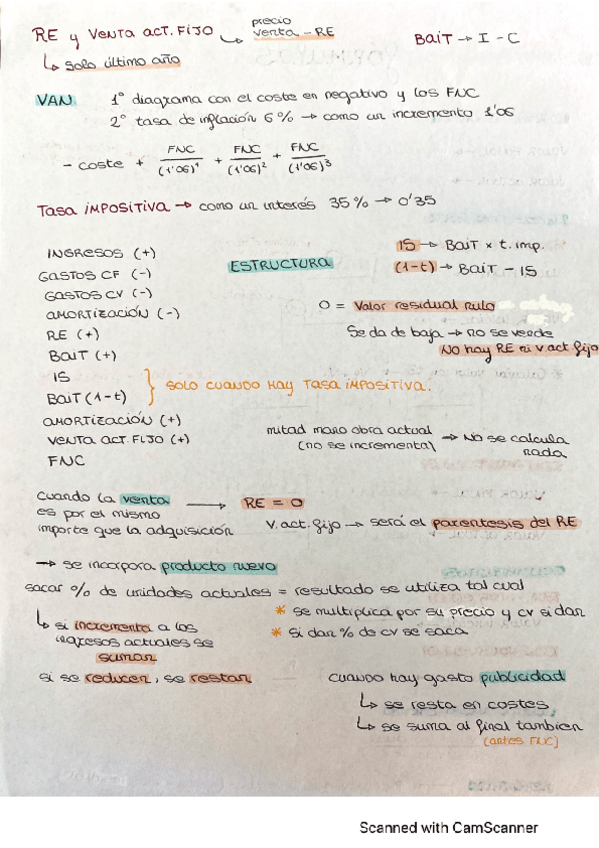 RE y VENTA ACT. FIJO ↳ precio venta - RE
BAIT → I - C
↳ solo último año
VAN 1º diagrama con el coste en negativo y los FNC
2º tasa de inflación 6% → como un incremento 1'06
- coste + FNC/(1'06)¹ + FNC/(1'06)² + FNC/(1'06)³
TASA IMPOSITIVA → como un interés 35% → 0'35
INGRESOS (+)
GASTOS CF (-)
GASTOS CV (-)
AMORTIZACIÓN (-)
RE (+)
BAIT (+)
IS
BAIT (1-t)
} SOLO CUANDO HAY TASA IMPOSITIVA.
AMORTIZACIÓN (+)
VENTA ACT. FIJO (+)
FNC
ESTRUCTURA
IS → BAIT x t. imp.
(1-t) → BAIT - IS
0 = Valor residual nulo
Se da de baja → no se vende
No hay RE ni v act fijo
mitad mano obra actual
(no se incrementa) → No se calcula
nada
Cuando la venta
es por el mismo
importe que la adquisición
→ RE = 0
V. act. fijo → será el parentesis del RE
→ se incorpora producto nuevo
sacar % de unidades actuales = resultado se utiliza tal cual
* se multiplica por su precio y cv si dan
* si dan % de cv se saca
↳ si incrementa a los
ingresos actuales se
suman
si se reducen, se restan
cuando hay gasto publicidad
↳ se resta en costes
↳ se suma al final tambien
(antes FNC)
Scanned with CamScanner